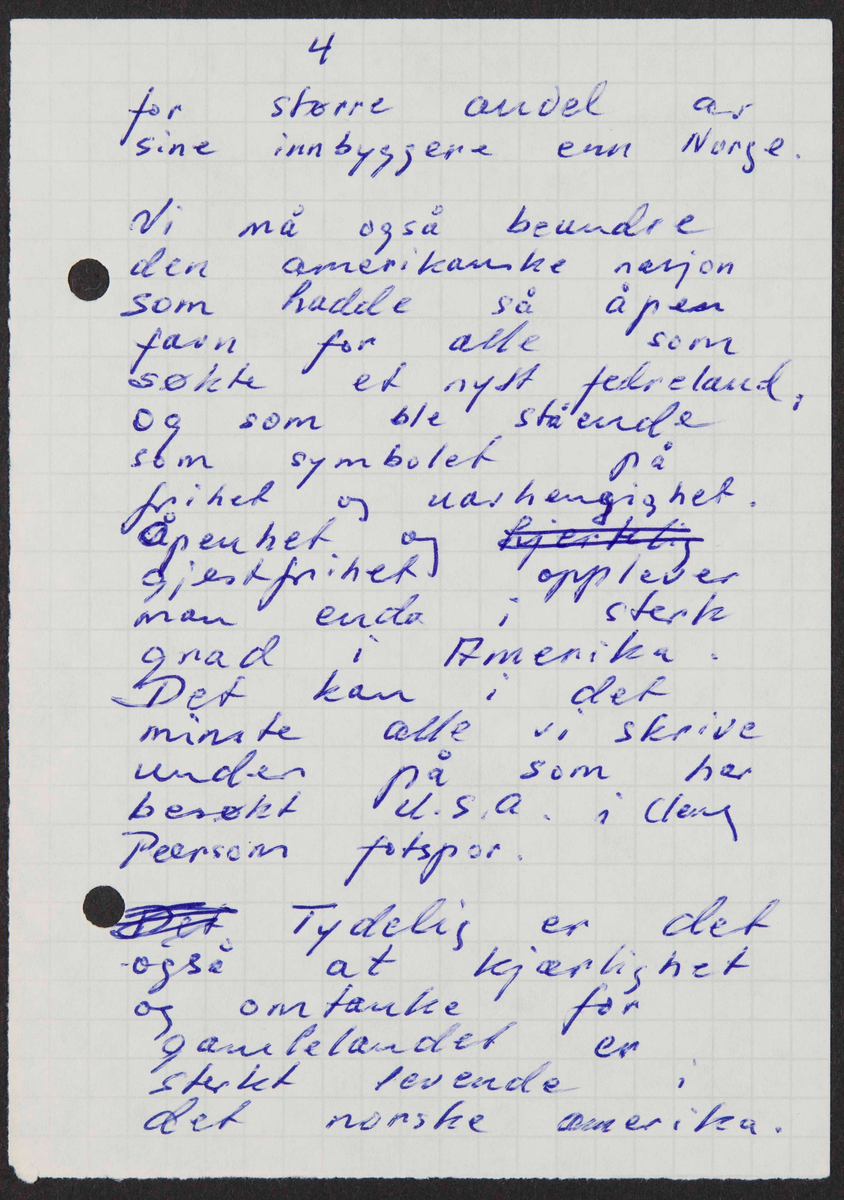 4
for større andel av
sine innbyggere enn Norge.
Vi må også beundre
den amerikanske nasjon
som hadde så åpen
favn for alle som
søkte et nytt fedreland,
og som ble stående
som symbolet på
frihet og uavhengighet.
Åpenhet og hjertelig
gjestfrihet opplever
man enda i sterk
grad i Amerika.
Det kan i det
minste alle vi skrive
under på som har
besøkt U.S.A. i Cleng
Peersons fotspor.
Det Tydelig er det
også at kjærlighet
og omtanke for
gamlelandet er
sterkt levende i
det norske amerika.